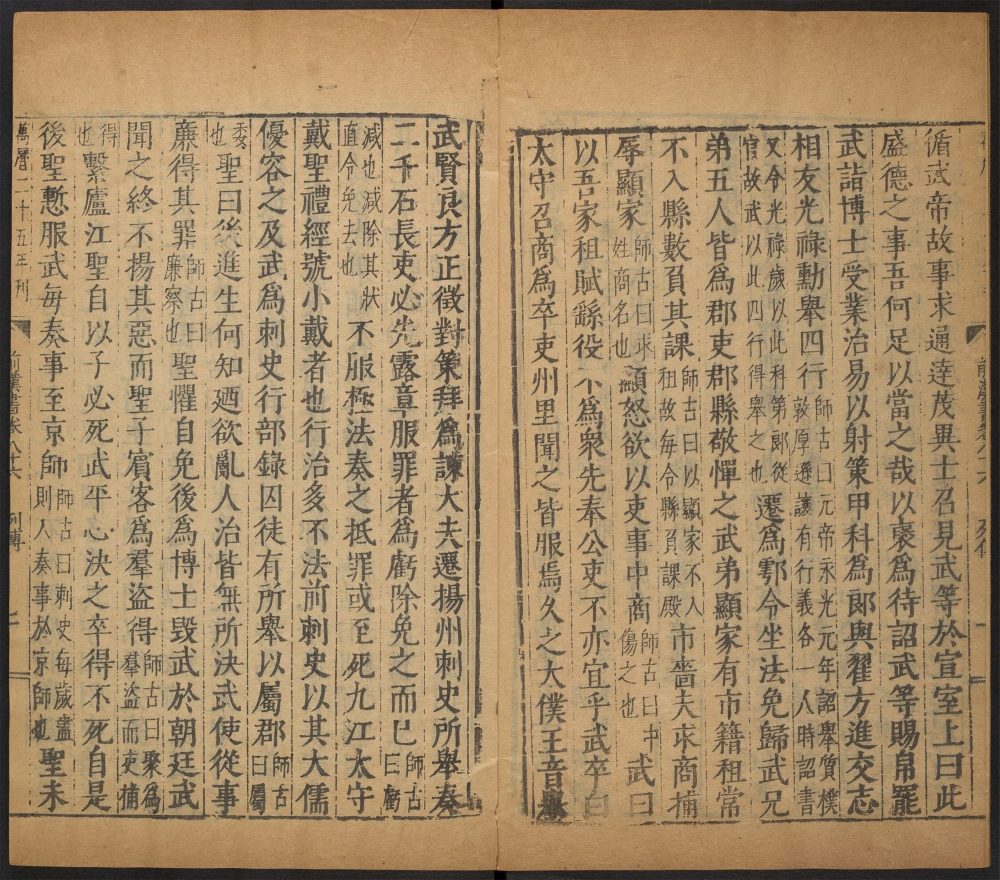 循武帝故事求通達茂異士召見武等於宣室上曰此
盛德之事吾何足以當之哉以褒為待詔武等賜帛罷
武詣博士受業治易以射策甲科為郎與翟方進交志
相友光祿勳舉四行師古曰元帝永光元年詔舉質樸敦厚遜讓有行義各一人時詔書
又令光祿歲以此科第郎從官故武以此四行得舉之也遷為鄠令坐法免歸武兄
弟五人皆為郡吏郡縣敬憚之武弟顯家有市籍租常
不入縣數負其課師古曰以顯家不入租故每令縣負課殿市嗇夫求商捕
辱顯家師古曰求姓商名也顯怒欲以吏事中商師古曰中傷之也武曰
以吾家租賦繇役不為衆先奉公吏不亦宜乎武卒白
太守召商為卒吏州里聞之皆服焉久之大僕王音舉
武賢良方正徵對策拜為諫大夫遷揚州刺史所舉奏
二千石長吏必先露章服罪者為虧除免之而已師古曰虧
減也減除其狀直令免去也不服極法奏之抵罪或至死九江太守
戴聖禮經號小戴者也行治多不法前刺史以其大儒
優容之及武為刺史行部錄囚徒有所舉以屬郡師古曰屬
委也聖曰後進生何知廼欲亂人治皆無所決武使從事
廉得其罪師古曰廉察也聖懼自免後為博士毀武於朝廷武
聞之終不揚其惡而聖子賓客為羣盜得師古曰聚為羣盜而吏捕
得也繫廬江聖自以子必死武平心決之卒得不死自是
後聖慙服武每奏事至京師師古曰刺史每歲盡則入奏事於京師也聖未
萬曆二十五年刊
前漢書卷八十六 列傳